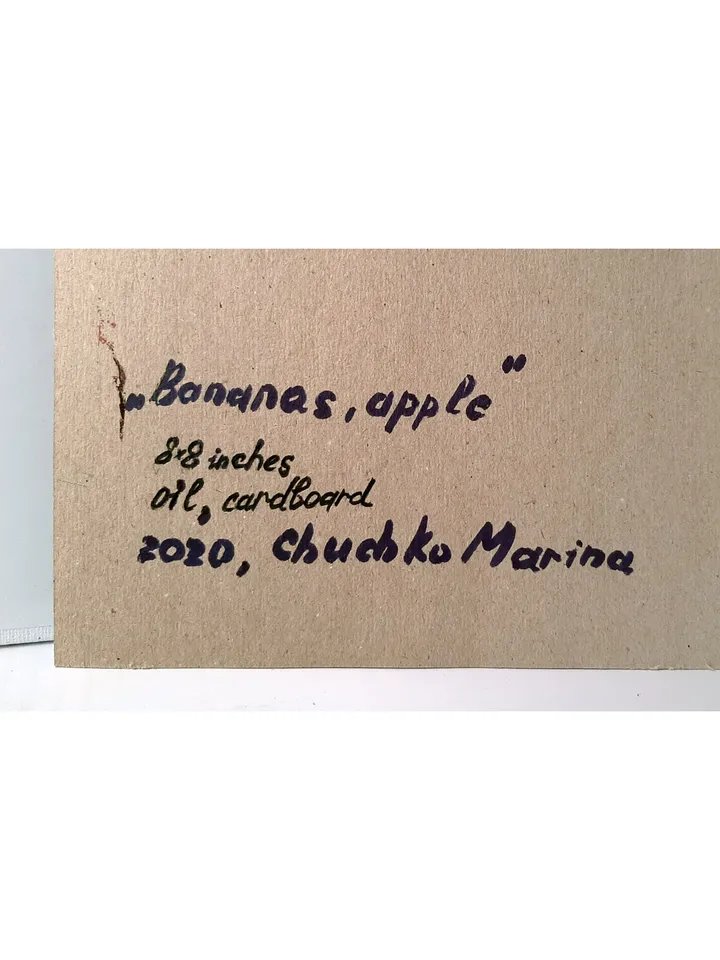 „Bananas, apple"
8x8 inches
oil, cardboard
2020, Chuchko Marina